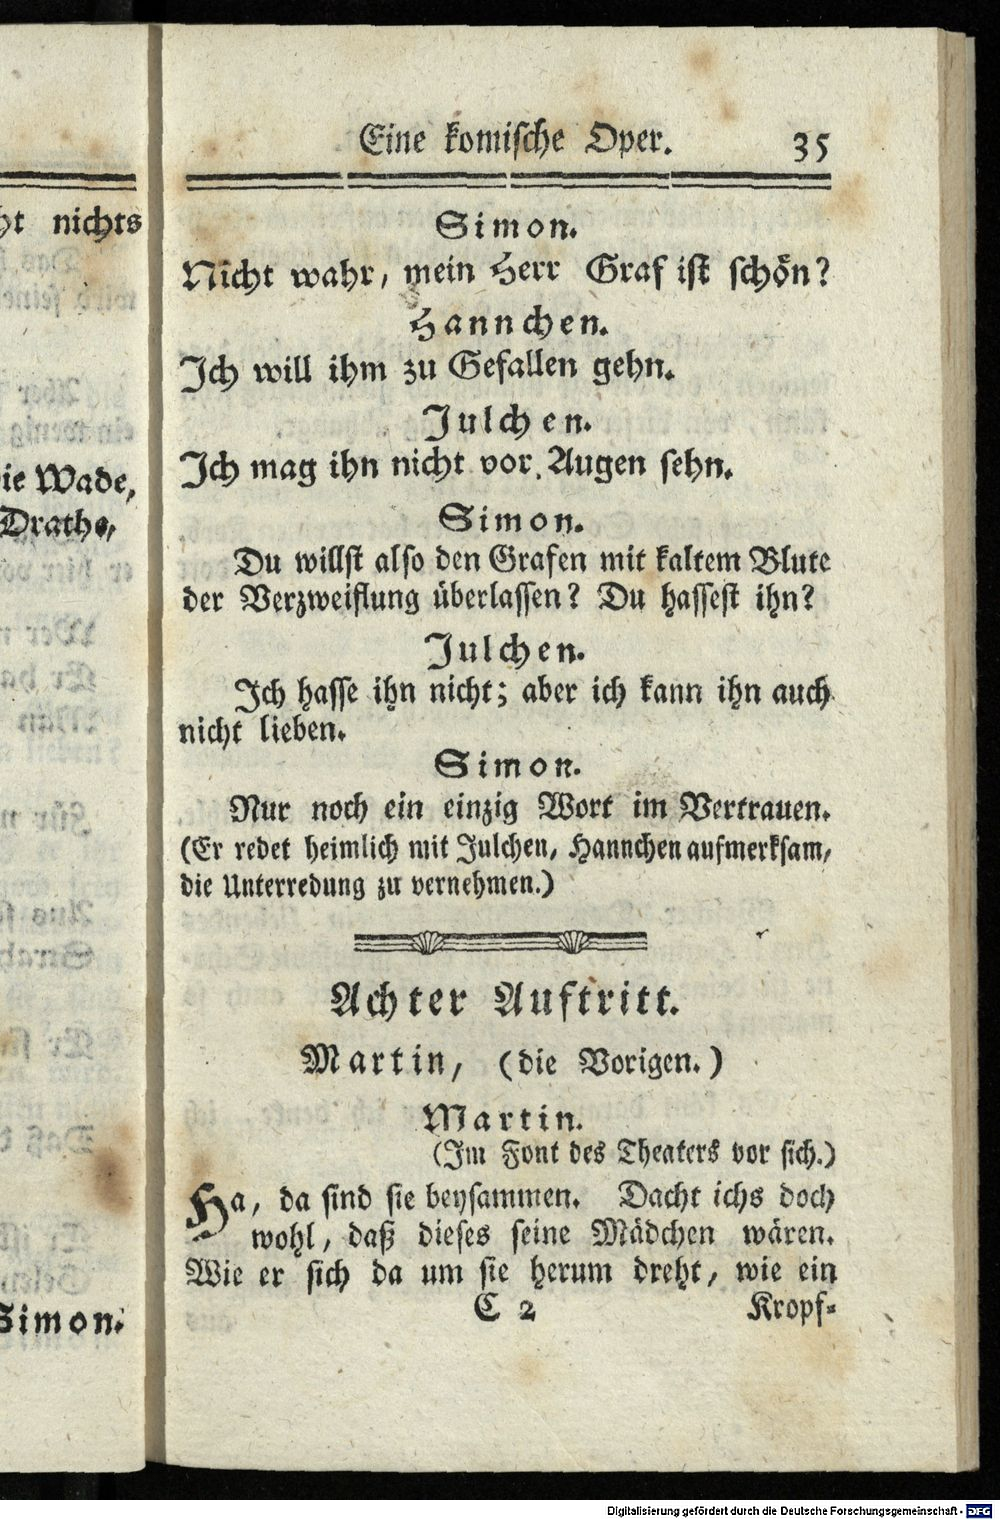 Eine komische Oper. 35
Simon.
Nicht wahr, mein Herr Graf ist schön?
Hannchen.
Ich will ihm zu Gefallen gehn.
Julchen.
Ich mag ihn nicht vor Augen sehn.
Simon.
Du willst also den Grafen mit kaltem Blute
der Verzweiflung überlassen? Du hassest ihn?
Julchen.
Ich hasse ihn nicht; aber ich kann ihn auch
nicht lieben.
Simon.
Nur noch ein einzig Wort im Vertrauen.
(Er redet heimlich mit Julchen, Hannchen aufmerksam,
die Unterredung zu vernehmen.)
Achter Auftritt.
Martin, (die Vorigen.)
Martin.
(Im Font des Theaters vor sich.)
Ha, da sind sie beysammen. Dacht ichs doch
wohl, daß dieses seine Mädchen wären.
Wie er sich da um sie herum dreht, wie ein
C 2 Kropf-
nichts
Wade,
Drathe,
Simon.
Digitalisierung gefördert durch die Deutsche Forschungsgemeinschaft - DFG